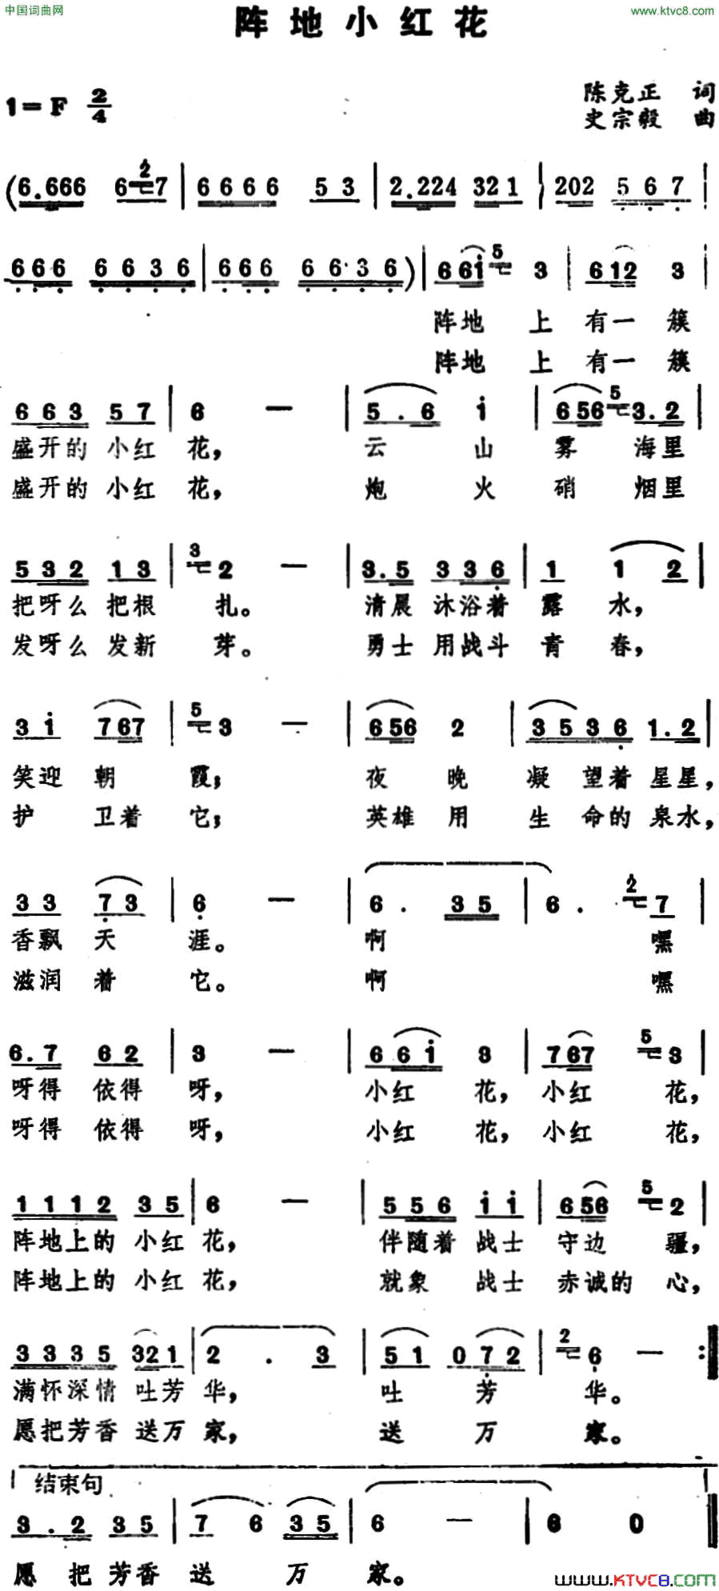 中国词曲网
www.ktvc8.com
阵地小红花
1=F 2/4
陈克正 词
史宗毅 曲
(6.666 6 2 7 | 6666 53 | 2.224 321 | 202 567 |
666 6636 | 666 6636) | 661 5 3 | 612 3 |
阵地 上 有一 簇
阵地 上 有一 簇
663 57 | 6 — | 5.6 i | 656 5 3.2 |
盛开的 小红 花， 云 山 雾 海里
盛开的 小红 花， 炮 火 硝 烟里
532 13 | 3 2 — | 3.5 336 | 1 1 2 |
把呀么 把根 扎。 清晨 沐浴着 露 水，
发呀么 发新 芽。 勇士 用战斗 青 春，
3i 767 | 5 3 — | 656 2 | 3536 1.2 |
笑迎 朝 霞； 夜 晚 凝 望着 星星，
护 卫着 它； 英雄 用 生 命的 泉水，
33 73 | 6 — | 6. 35 | 6. 2 7 |
香飘 天 涯。 啊 嘿
滋润 着 它。 啊 嘿
6.7 62 | 3 — | 66i 3 | 767 5 3 |
呀得 依得 呀， 小红 花， 小红 花，
呀得 依得 呀， 小红 花， 小红 花，
1112 35 | 6 — | 556 ii | 656 5 2 |
阵地上的 小红 花， 伴随着 战士 守边 疆，
阵地上的 小红 花， 就象 战士 赤诚的 心，
3335 321 | 2 . 3 | 51 072 | 2 6 — :‖
满怀深情 吐芳 华， 吐 芳 华。
愿把芳香 送万 家， 送 万 家。
结束句
3.2 35 | 7 6 35 | 6 — | 6 0 ‖
愿 把 芳香 送 万 家。
www.KTVC8.com